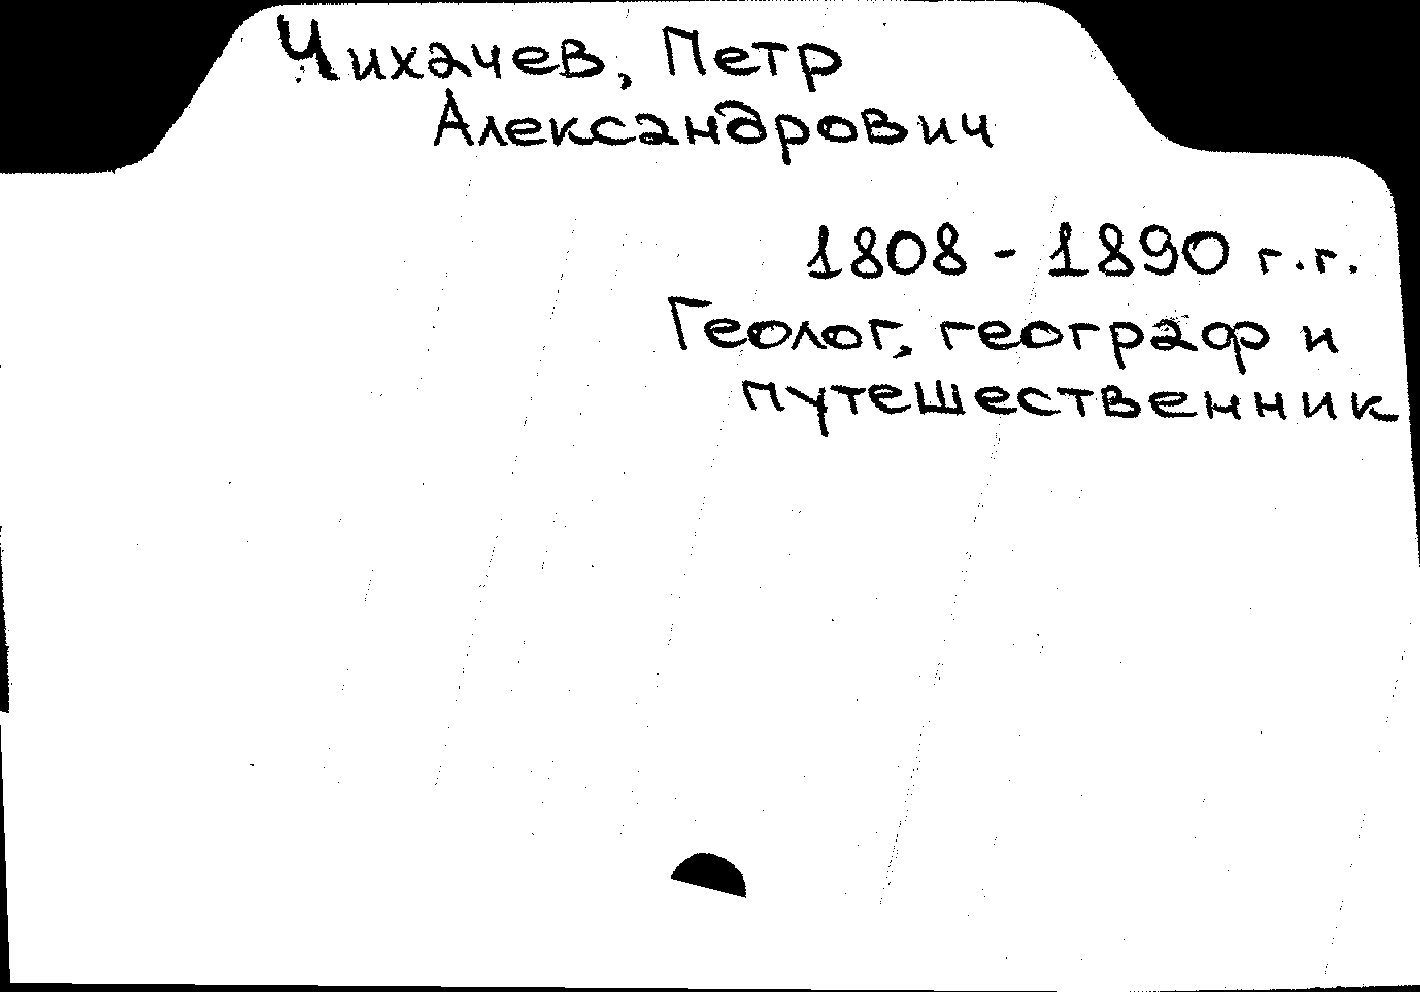 Чихачев, Петр
Александрович
1808 - 1890 г.г.
Геолог, географ и
путешественник